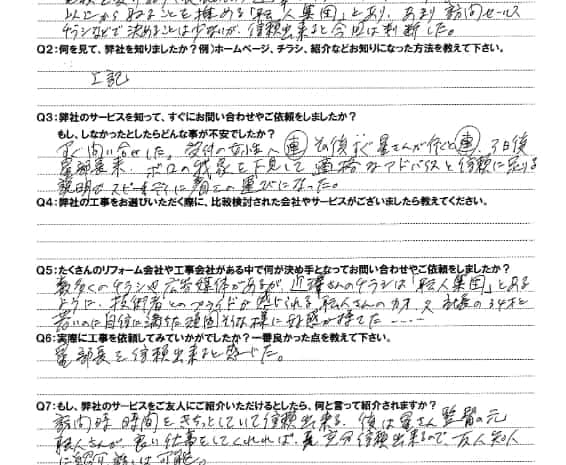 以上からねることを推める「転人集団」とあり、あまり訪問セールス
チラシなどで決めることは少ないが、信頼出来ると今回は判断した。
Q2:何を見て、弊社を知りましたか?例)ホームページ、チラシ、紹介などお知りになった方法を教えて下さい。
上記
Q3:弊社のサービスを知って、すぐにお問い合わせやご依頼をしましたか?
もし、しなかったとしたらどんな事が不安でしたか?
すぐ問い合せした。受付の女性へ その後すぐ 星さんが行くと 3日後
部長来 ボロの我家を下見して適格なアドバイスと信頼に足りる
説明でスピーディに着工の運びになった。
Q4:弊社の工事をお選びいただく際に、比較検討された会社やサービスがございましたら教えてください。
Q5:たくさんのリフォーム会社や工事会社がある中で何が決め手となってお問い合わせやご依頼をしましたか?
数多くのチラシや広告媒体があるが、さんのチラシは「職人集団」とある
ように、技術者としてのプライドが感じられる職人さんのカオ、又 社長の34才と
若いのに自信に満ちた頑固そうな様に好感が持てた・・・・・
Q6:実際に工事を依頼してみていかがでしたか?一番良かった点を教えて下さい。
部長を信頼出来ると感じた。
Q7:もし、弊社のサービスをご友人にご紹介いただけるとしたら、何と言って紹介されますか?
訪問時 時間をきちっとしていて信頼出来る、後は さん監督の元
職人さんが良い仕事をしてくれれば、充分信頼出来るので、友人知人
に紹介 は可能。